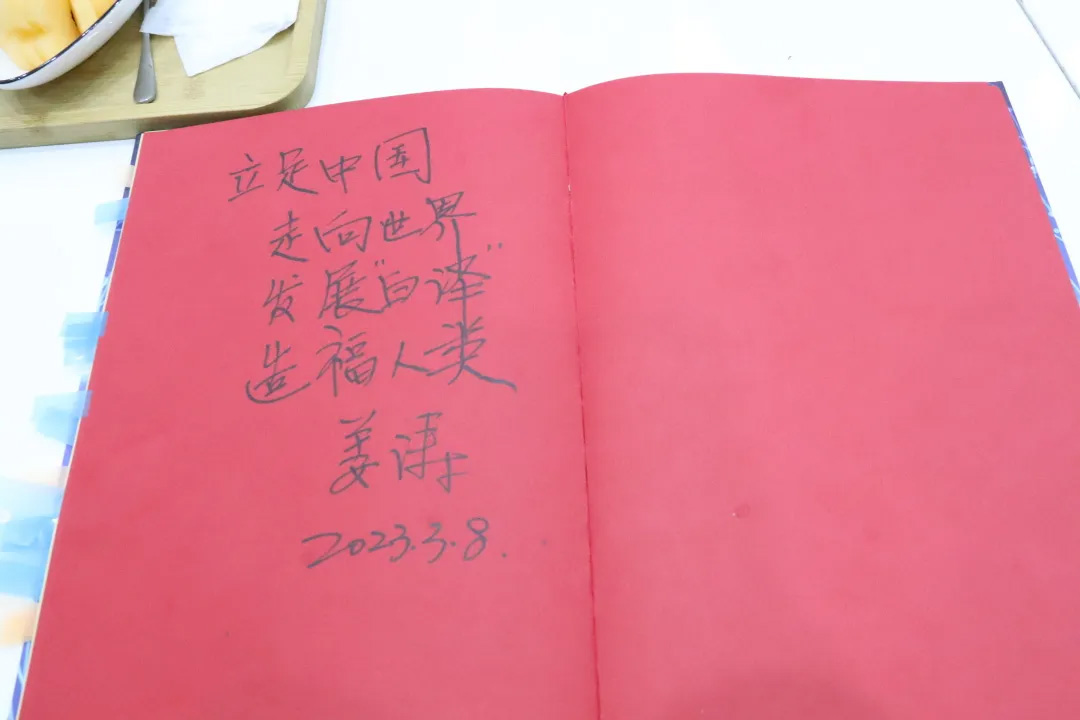 立足中国
走向世界
发展"白译"
造福人类
姜涛
2023.3.8.